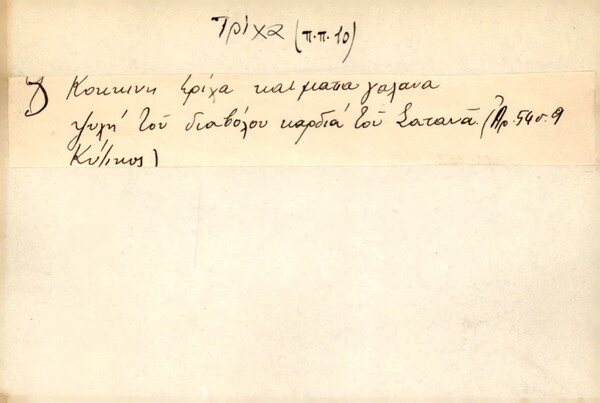 Τρίχα (π.π.10)
γ) Κοκκινη τρίχα και ματια γαλανα
ψυχή τοῦ διαβόλου καρδιά τοῦ Σατανᾶ. (Ἀρ. 54 σ. 9
Κύζικος)